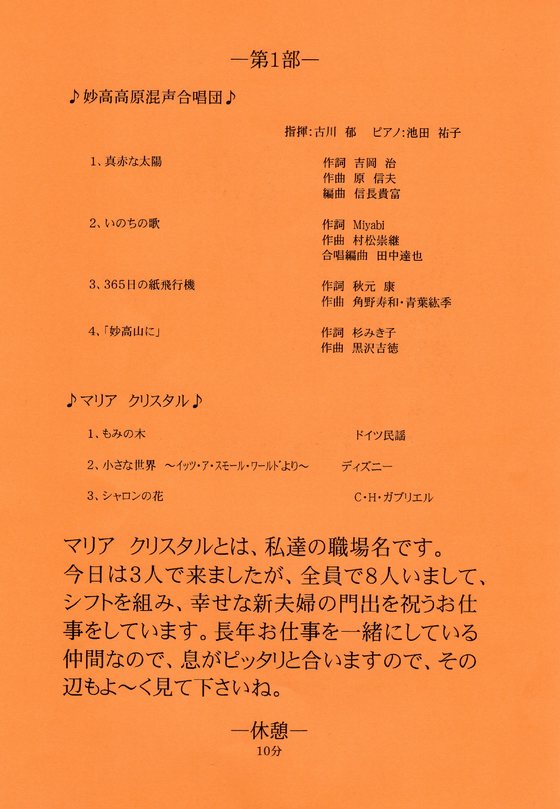 ―第1部―
♪妙高高原混声合唱団♪
指揮:古川 郁 ピアノ:池田 祐子
1、真赤な太陽 作詞 吉岡 治
作曲 原 信夫
編曲 信長貴富
2、いのちの歌 作詞 Miyabi
作曲 村松崇継
合唱編曲 田中達也
3、365日の紙飛行機 作詞 秋元 康
作曲 角野寿和・青葉紘季
4、「妙高山に」 作詞 杉みき子
作曲 黒沢吉徳
♪マリア クリスタル♪
1、もみの木 ドイツ民謡
2、小さな世界 ～イッツ・ア・スモール・ワールドより～ ディズニー
3、シャロンの花 C・H・ガブリエル
マリア クリスタルとは、私達の職場名です。
今日は3人で来ましたが、全員で8人いまして、
シフトを組み、幸せな新夫婦の門出を祝うお仕
事をしています。長年お仕事を一緒にしている
仲間なので、息がピッタリと合いますので、その
辺もよ～く見て下さいね。
―休憩―
10分